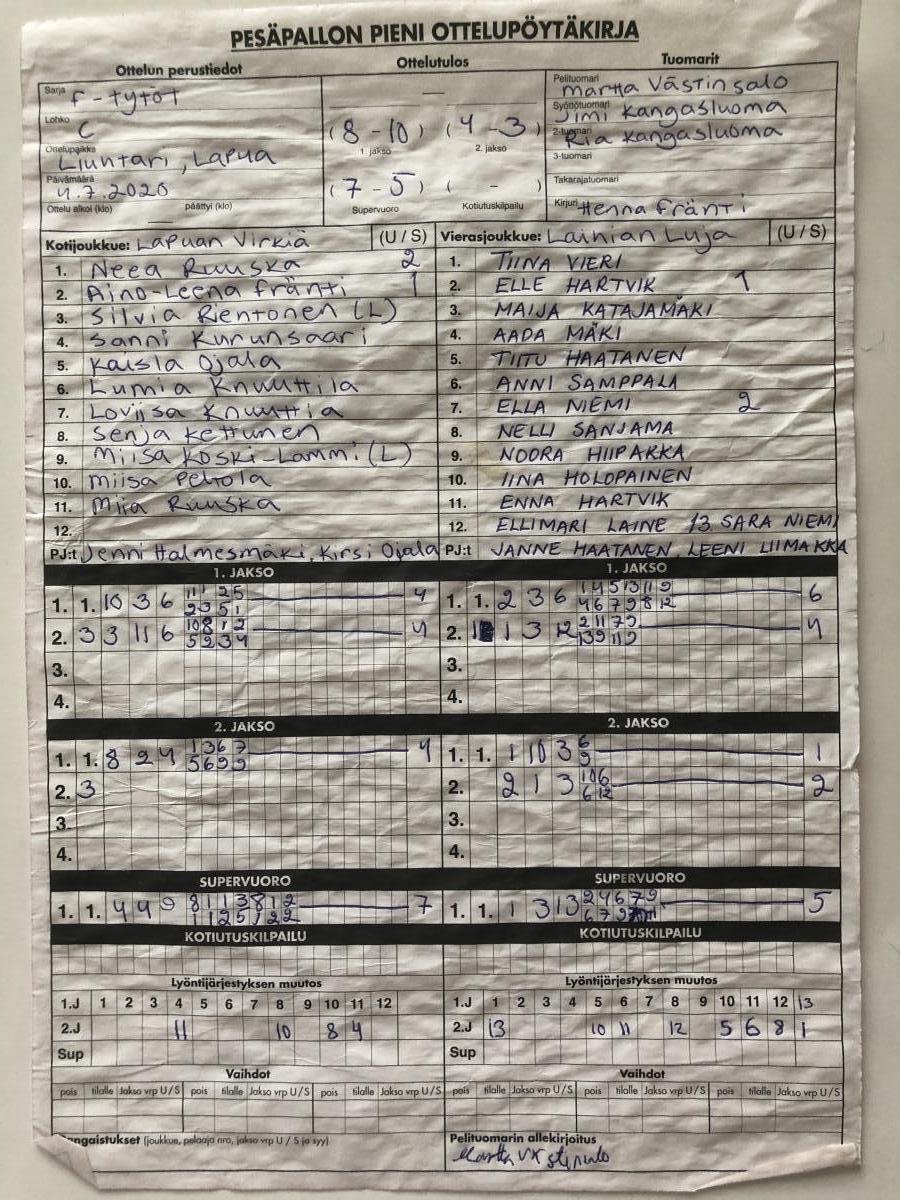 PESÄPALLON PIENI OTTELUPÖYTÄKIRJA
Ottelun perustiedot
Ottelutulos
Tuomarit
Sarja F-tytöt
Lohko C
Ottelupaikka Liuntari, Lapua
Päivämäärä 4.7.2020
Ottelu alkoi (klo) päättyi (klo)
—
(8 - 10) (4 - 3)
1. jakso 2. jakso
(7 - 5) ( - )
Supervuoro Kotiutuskilpailu
Pelituomari Martta Västinsalo
Syöttötuomari Jimi Kangasluoma
2-tuomari Ria Kangasluoma
3-tuomari
Takarajatuomari
Kirjuri Henna Fränti
Kotijoukkue: Lapuan Virkiä (U / S)
1. Neea Ruuska 2
2. Aino-Leena Fränti 1
3. Silvia Rentonen (L)
4. Sanni Kurunsaari
5. Kaisla Ojala
6. Lumia Knuuttila
7. Loviisa Knuuttila
8. Senja Kettunen
9. Miisa Koski-Lammi (L)
10. Miisa Peltola
11. Miia Ruuska
12.
PJ:t Jenni Halmesmäki, Kirsi Ojala
Vierasjoukkue: Lainian Luja (U / S)
1. TIINA VIERI
2. ELLE HARTVIK 1
3. MAIJA KATAJAMÄKI
4. AADA MÄKI
5. TIITU HAATANEN
6. ANNI SAMPPALA
7. ELLA NIEMI 2
8. NELLI SANJAMA
9. NOORA HIIPAKKA
10. IINA HOLOPAINEN
11. ENNA HARTVIK
12. ELLIMARI LAINE 13. SARA NIEMI
PJ:t JANNE HAATANEN, LEENI LIIMAKKA
1. JAKSO
1. 1. 10 3 6 11 1 2 5 4
2 3 5 1
2. 3 3 11 6 10 8 1 2 4
5 2 3 4
3.
4.
1. JAKSO
1. 1. 2 3 6 1 4 5 13 11 9 6
4 6 7 9 8 12
2. 1 3 12 2 11 7 9 4
13 9 11 9
3.
4.
2. JAKSO
1. 1. 8 2 4 1 3 6 7 4
5 6 9 9
2. 3
3.
4.
2. JAKSO
1. 1. 1 10 3 6 1
9
2. 2 1 3 10 6 2
6 12
3.
4.
SUPERVUORO
1. 1. 4 4 9 8 1 1 3 8 1 2 7
1 1 2 5 1 2 2
SUPERVUORO
1. 1. 1 3 13 2 4 6 7 9 5
6 7 9
KOTIUTUSKILPAILU
KOTIUTUSKILPAILU
Lyöntijärjestyksen muutos
1.J 1 2 3 4 5 6 7 8 9 10 11 12
2.J 11 10 8 4
Sup
Lyöntijärjestyksen muutos
1.J 1 2 3 4 5 6 7 8 9 10 11 12 13
2.J 13 10 11 12 5 6 8 1
Sup
Vaihdot
pois tilalle Jakso vrp U / S pois tilalle Jakso vrp U / S pois tilalle Jakso vrp U / S
Vaihdot
pois tilalle Jakso vrp U / S pois tilalle Jakso vrp U / S pois tilalle Jakso vrp U / S
ngaistukset (joukkue, pelaaja nro, jakso vrp U / S ja syy)
Pelituomarin allekirjoitus